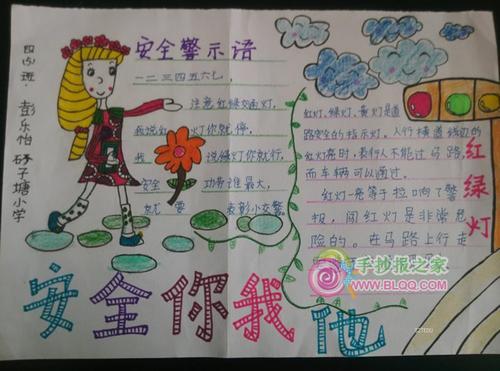 安全警示语
一二三四五六七,
注意红绿交通灯,
我说红灯你就停,
我说绿灯你就行,
安全功劳谁最大,
就要表彰小交警。
彭乐怡
砂子塘小学
红灯、绿灯、黄灯是道
路安全的指示灯。人行横道线边的
红灯亮时,表行人不能过马路,
而车辆可以通过。
红灯一亮等于拉响了警
报,闯红灯是非常危
险的。在马路上行走
红绿灯
安全你我他
手抄报之家
WWW.BLQQ.COM